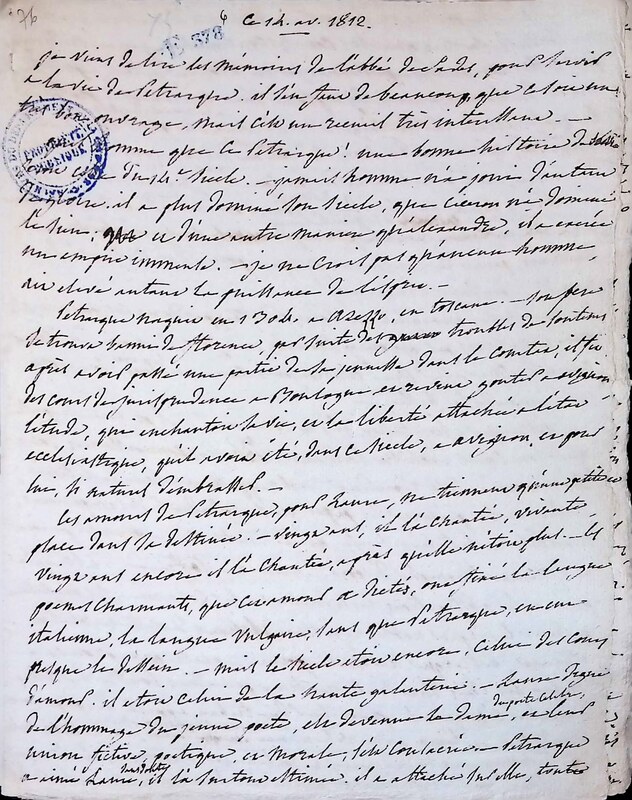 76
6 Ce 14. av. 1812.
E 378
je viens de lire les mémoires de l'abbé de Sades, pour servir
a la vie de Petrarque. il s'en faut de beaucoup, que ce soit un
bon ouvrage, mais c'est un recueil très interessant. —
homme que ce Petrarque! une bonne histoire de
du 14e siecle. — jamais homme n'a joui d'autant
gloire. il a plus dominé son siecle, que ciceron ne domina
le sien; et d'une autre maniere qu'alexandre, il a exercé
un empire immense. — je ne crois pas qu'aucun homme,
ait elevé autant la puissance de l'esprit. —
Petrarque naquit en 1304. a Arezzo, en toscane. — son pere
se trouva banni de florence, par suite des troubles
après avoir passé une partie de sa jeunesse dans le comtat, il fit
des cours de jurisprudence a Boulogne et revint gouter a avignon
l'étude, qui enchanta sa vie, et la liberté attachée a l'état
ecclesiastique, qu'il avoit été, dans ce siecle, a avignon, et pour
lui, si naturel d'embrasser. —
Les amours de Petrarque, pour Laure, ne tiennent qu'une petite
place dans sa destinée. — vingt ans, il l'a chantée, vivante,
vingt ans encore il l'a chantée, après qu'elle n'étoit plus. — les
poemes charmants, que cet amour a dictés, ont fixé la langue
italienne, la langue vulgaire, sans que Petrarque, en eut
presque le dessein. — mais le siecle etoit encore, celui des cours
d'amour. il etoit celui de la haute galanterie. — Laure
de l'hommage du jeune poete, elle devint la dame, du poete celebre, et leur
union fictive, poétique, et morale, fut consacrée. — Petrarque
a aimé Laure, il l'a surtout estimée. il a attaché sur elle, toute